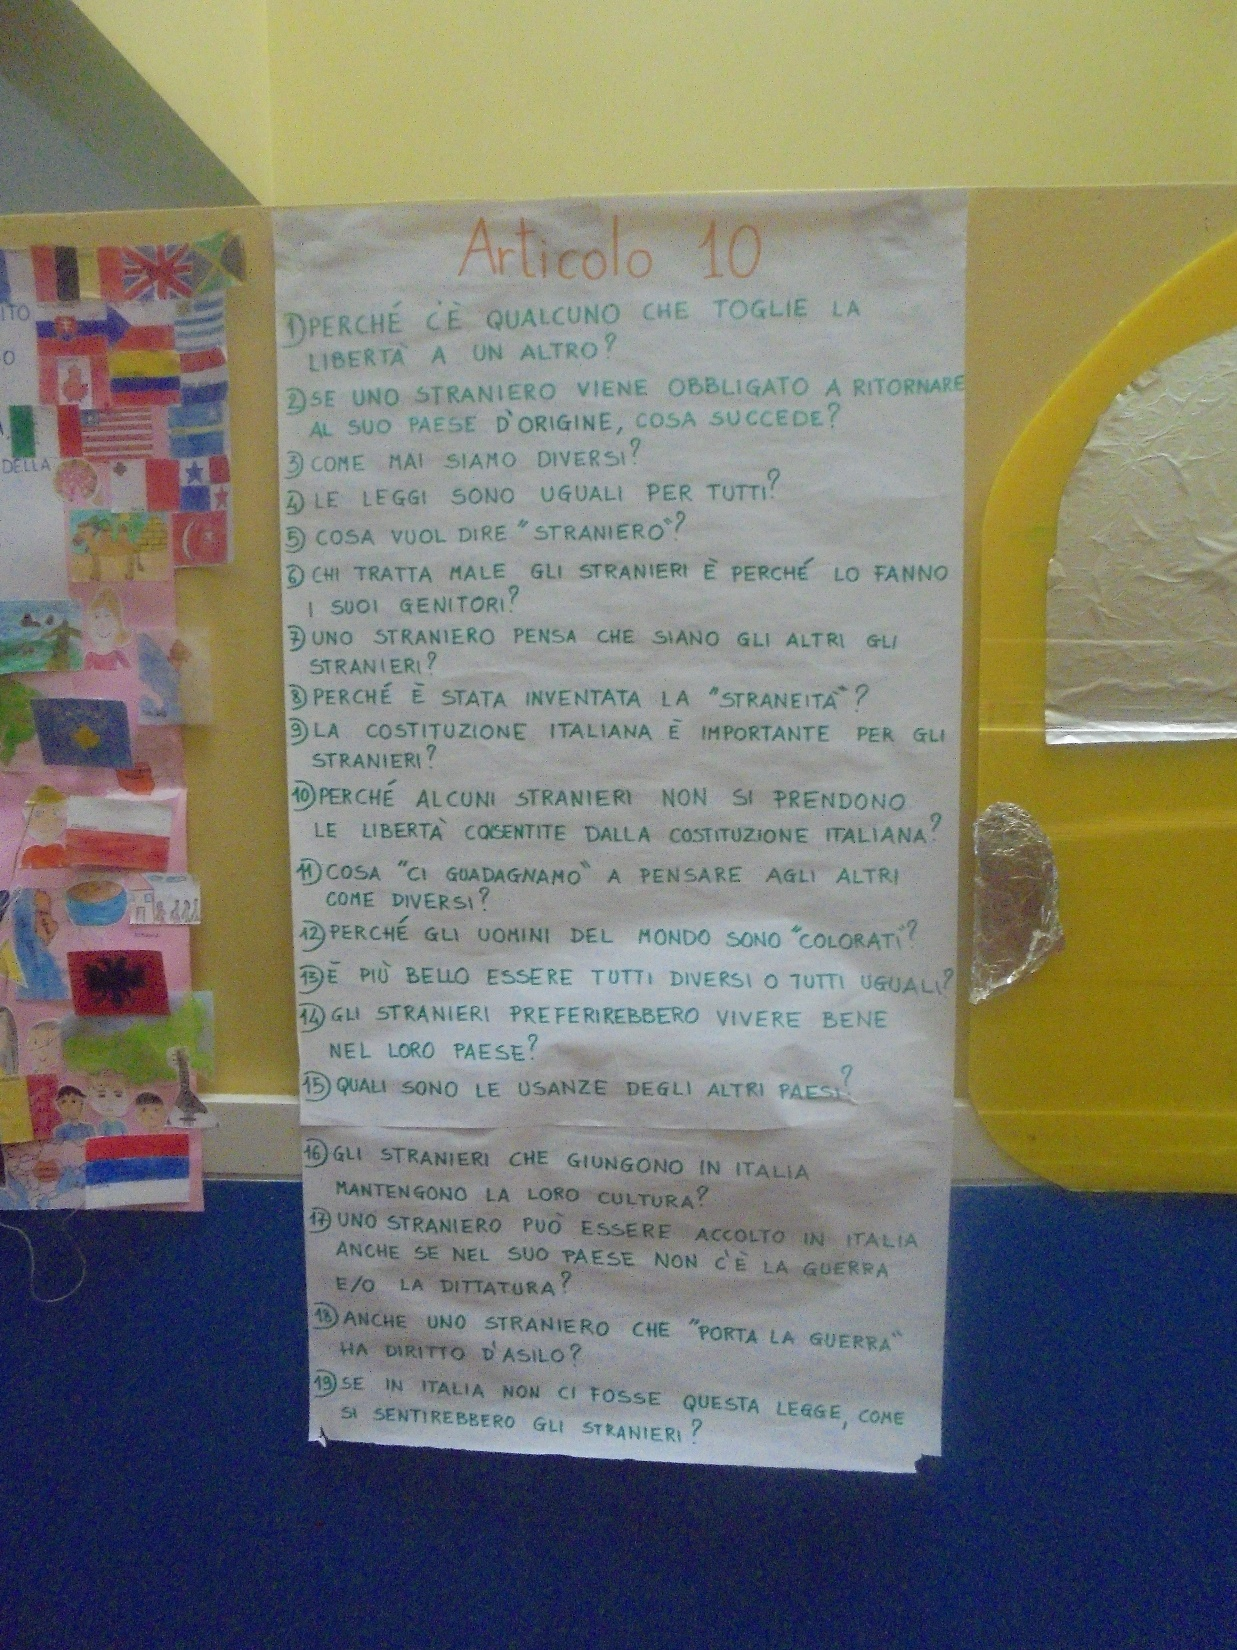 ITO
O
A,
DELLA
Articolo 10
1) PERCHÉ C'È QUALCUNO CHE TOGLIE LA
LIBERTÀ A UN ALTRO?
2) SE UNO STRANIERO VIENE OBBLIGATO A RITORNARE
AL SUO PAESE D'ORIGINE, COSA SUCCEDE?
3) COME MAI SIAMO DIVERSI?
4) LE LEGGI SONO UGUALI PER TUTTI?
5) COSA VUOL DIRE "STRANIERO"?
6) CHI TRATTA MALE GLI STRANIERI È PERCHÉ LO FANNO
I SUOI GENITORI?
7) UNO STRANIERO PENSA CHE SIANO GLI ALTRI GLI
STRANIERI?
8) PERCHÉ È STATA INVENTATA LA "STRANEITÀ"?
9) LA COSTITUZIONE ITALIANA È IMPORTANTE PER GLI
STRANIERI?
10) PERCHÉ ALCUNI STRANIERI NON SI PRENDONO
LE LIBERTÀ COSENTITE DALLA COSTITUZIONE ITALIANA?
11) COSA "CI GUADAGNAMO" A PENSARE AGLI ALTRI
COME DIVERSI?
12) PERCHÉ GLI UOMINI DEL MONDO SONO "COLORATI"?
13) È PIÙ BELLO ESSERE TUTTI DIVERSI O TUTTI UGUALI?
14) GLI STRANIERI PREFERIREBBERO VIVERE BENE
NEL LORO PAESE?
15) QUALI SONO LE USANZE DEGLI ALTRI PAESI?
16) GLI STRANIERI CHE GIUNGONO IN ITALIA
MANTENGONO LA LORO CULTURA?
17) UNO STRANIERO PUÒ ESSERE ACCOLTO IN ITALIA
ANCHE SE NEL SUO PAESE NON C'È LA GUERRA
E/O LA DITTATURA?
18) ANCHE UNO STRANIERO CHE "PORTA LA GUERRA"
HA DIRITTO D'ASILO?
19) SE IN ITALIA NON CI FOSSE QUESTA LEGGE, COME
SI SENTIREBBERO GLI STRANIERI?